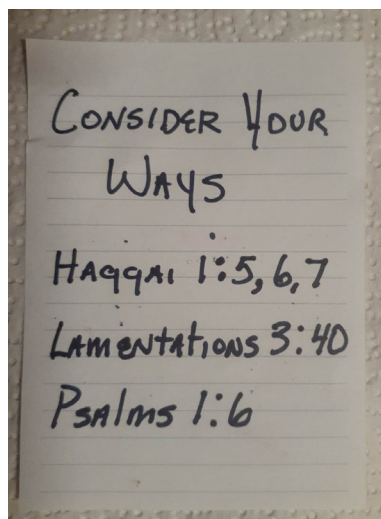 CONSIDER YOUR
WAYS
HAGGAI 1:5,6,7
LAMENTATIONS 3:40
PSALMS 1:6